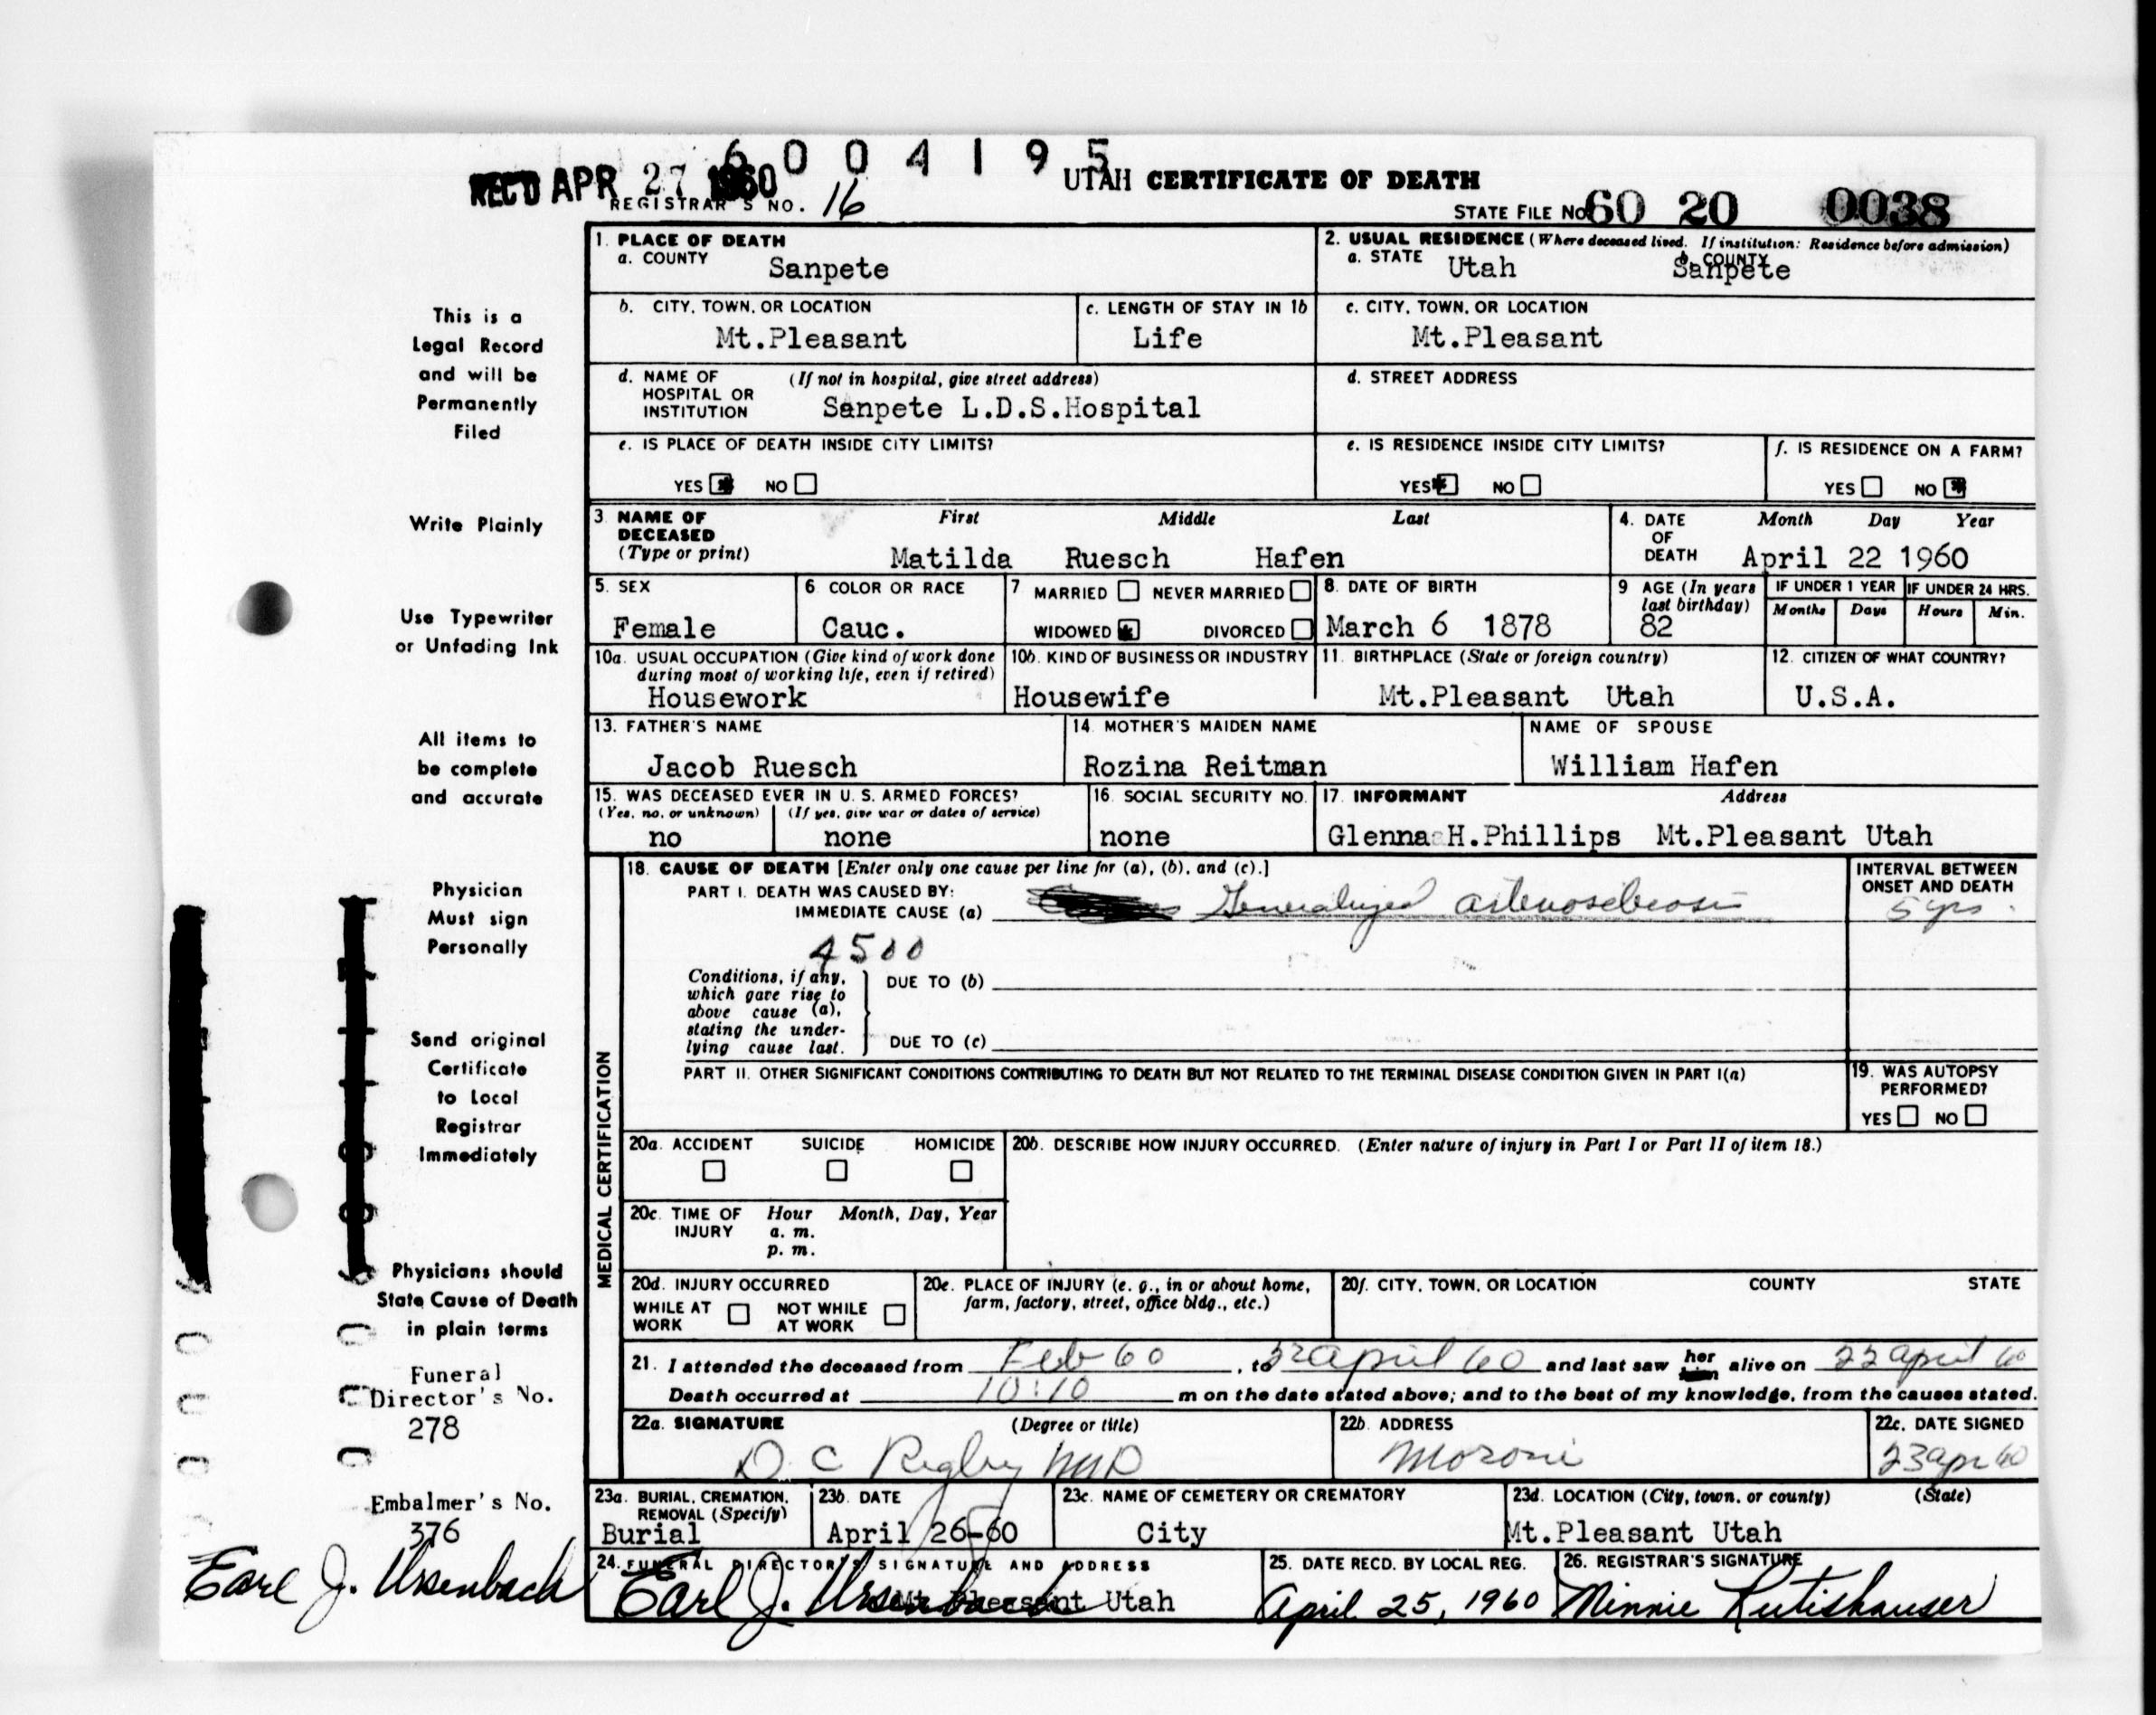 6004195
REC'D APR 27 1960
UTAH CERTIFICATE OF DEATH
REGISTRAR'S NO. 16
STATE FILE NO. 60 20 0038
This is a
Legal Record
and will be
Permanently
Filed
Write Plainly
Use Typewriter
or Unfading Ink
All items to
be complete
and accurate
Physician
Must sign
Personally
Send original
Certificate
to Local
Registrar
Immediately
Physicians should
State Cause of Death
in plain terms
Funeral
Director's No.
278
Embalmer's No.
376
Earl J. Ursenbach
1. PLACE OF DEATH
a. COUNTY Sanpete
2. USUAL RESIDENCE (Where deceased lived. If institution: Residence before admission)
a. STATE Utah b. COUNTY Sanpete
b. CITY, TOWN, OR LOCATION Mt.Pleasant
c. LENGTH OF STAY IN 1b Life
c. CITY, TOWN, OR LOCATION Mt.Pleasant
d. NAME OF HOSPITAL OR INSTITUTION (If not in hospital, give street address) Sanpete L.D.S.Hospital
d. STREET ADDRESS
e. IS PLACE OF DEATH INSIDE CITY LIMITS?
YES NO
e. IS RESIDENCE INSIDE CITY LIMITS?
YES NO
f. IS RESIDENCE ON A FARM?
YES NO
3 NAME OF DECEASED (Type or print)
First Middle Last
Matilda Ruesch Hafen
4. DATE OF DEATH Month Day Year
April 22 1960
5. SEX Female
6 COLOR OR RACE Cauc.
7 MARRIED NEVER MARRIED
WIDOWED DIVORCED
8. DATE OF BIRTH March 6 1878
9 AGE (In years last birthday) 82
IF UNDER 1 YEAR Months Days
IF UNDER 24 HRS. Hours Min.
10a. USUAL OCCUPATION (Give kind of work done during most of working life, even if retired) Housework
10b. KIND OF BUSINESS OR INDUSTRY Housewife
11. BIRTHPLACE (State or foreign country) Mt.Pleasant Utah
12. CITIZEN OF WHAT COUNTRY? U.S.A.
13. FATHER'S NAME Jacob Ruesch
14. MOTHER'S MAIDEN NAME Rozina Reitman
NAME OF SPOUSE William Hafen
15. WAS DECEASED EVER IN U. S. ARMED FORCES?
(Yes, no, or unknown) no
(If yes, give war or dates of service) none
16. SOCIAL SECURITY NO. none
17. INFORMANT Address
Glenna H.Phillips Mt.Pleasant Utah
MEDICAL CERTIFICATION
18. CAUSE OF DEATH [Enter only one cause per line for (a), (b), and (c).]
INTERVAL BETWEEN ONSET AND DEATH
PART I. DEATH WAS CAUSED BY:
IMMEDIATE CAUSE (a) Generalized arteriosclerosis 5 yrs.
4500
Conditions, if any, which gave rise to above cause (a), stating the underlying cause last.
DUE TO (b)
DUE TO (c)
PART II. OTHER SIGNIFICANT CONDITIONS CONTRIBUTING TO DEATH BUT NOT RELATED TO THE TERMINAL DISEASE CONDITION GIVEN IN PART I(a)
19. WAS AUTOPSY PERFORMED?
YES NO
20a. ACCIDENT SUICIDE HOMICIDE
20b. DESCRIBE HOW INJURY OCCURRED. (Enter nature of injury in Part I or Part II of item 18.)
20c. TIME OF INJURY Hour Month, Day, Year
a. m.
p. m.
20d. INJURY OCCURRED
WHILE AT WORK NOT WHILE AT WORK
20e. PLACE OF INJURY (e. g., in or about home, farm, factory, street, office bldg., etc.)
20f. CITY, TOWN, OR LOCATION COUNTY STATE
21. I attended the deceased from Feb 60, to 22 April 60 and last saw her him alive on 22 April 60
Death occurred at 10:10 m on the date stated above; and to the best of my knowledge, from the causes stated.
22a. SIGNATURE (Degree or title) D. C. Rigby MD
22b. ADDRESS Moroni
22c. DATE SIGNED 23 Apr 60
23a. BURIAL, CREMATION, REMOVAL (Specify) Burial
23b. DATE April 26-60
23c. NAME OF CEMETERY OR CREMATORY City
23d. LOCATION (City, town, or county) (State) Mt.Pleasant Utah
24. FUNERAL DIRECTOR'S SIGNATURE AND ADDRESS
Earl J. Ursenbach
Mt.Pleasant Utah
25. DATE RECD. BY LOCAL REG. April 25, 1960
26. REGISTRAR'S SIGNATURE Minnie Rutishauser